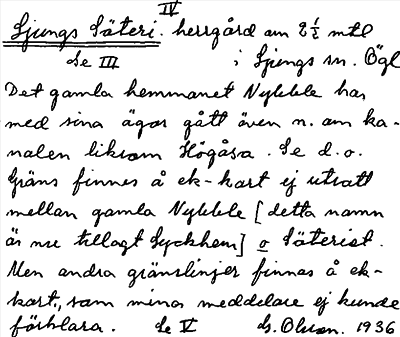 IV
Ljungs Säteri. herrgård om 2½ mtl
Se III i Ljungs sn. Ögl
Det gamla hemmanet Nykleble har
med sina ägor gått även n. om ka-
nalen liksom Högåsa. Se d.o.
Gräns finnes å ek-kart ej utsatt
mellan gamla Nykleble [detta namn
är nu tillagt Lyckhem] o Säteriet.
Men andra gränslinjer finnas å ek-
kart, som mina meddelare ej kunde
förklara. Se V G. Olson. 1936